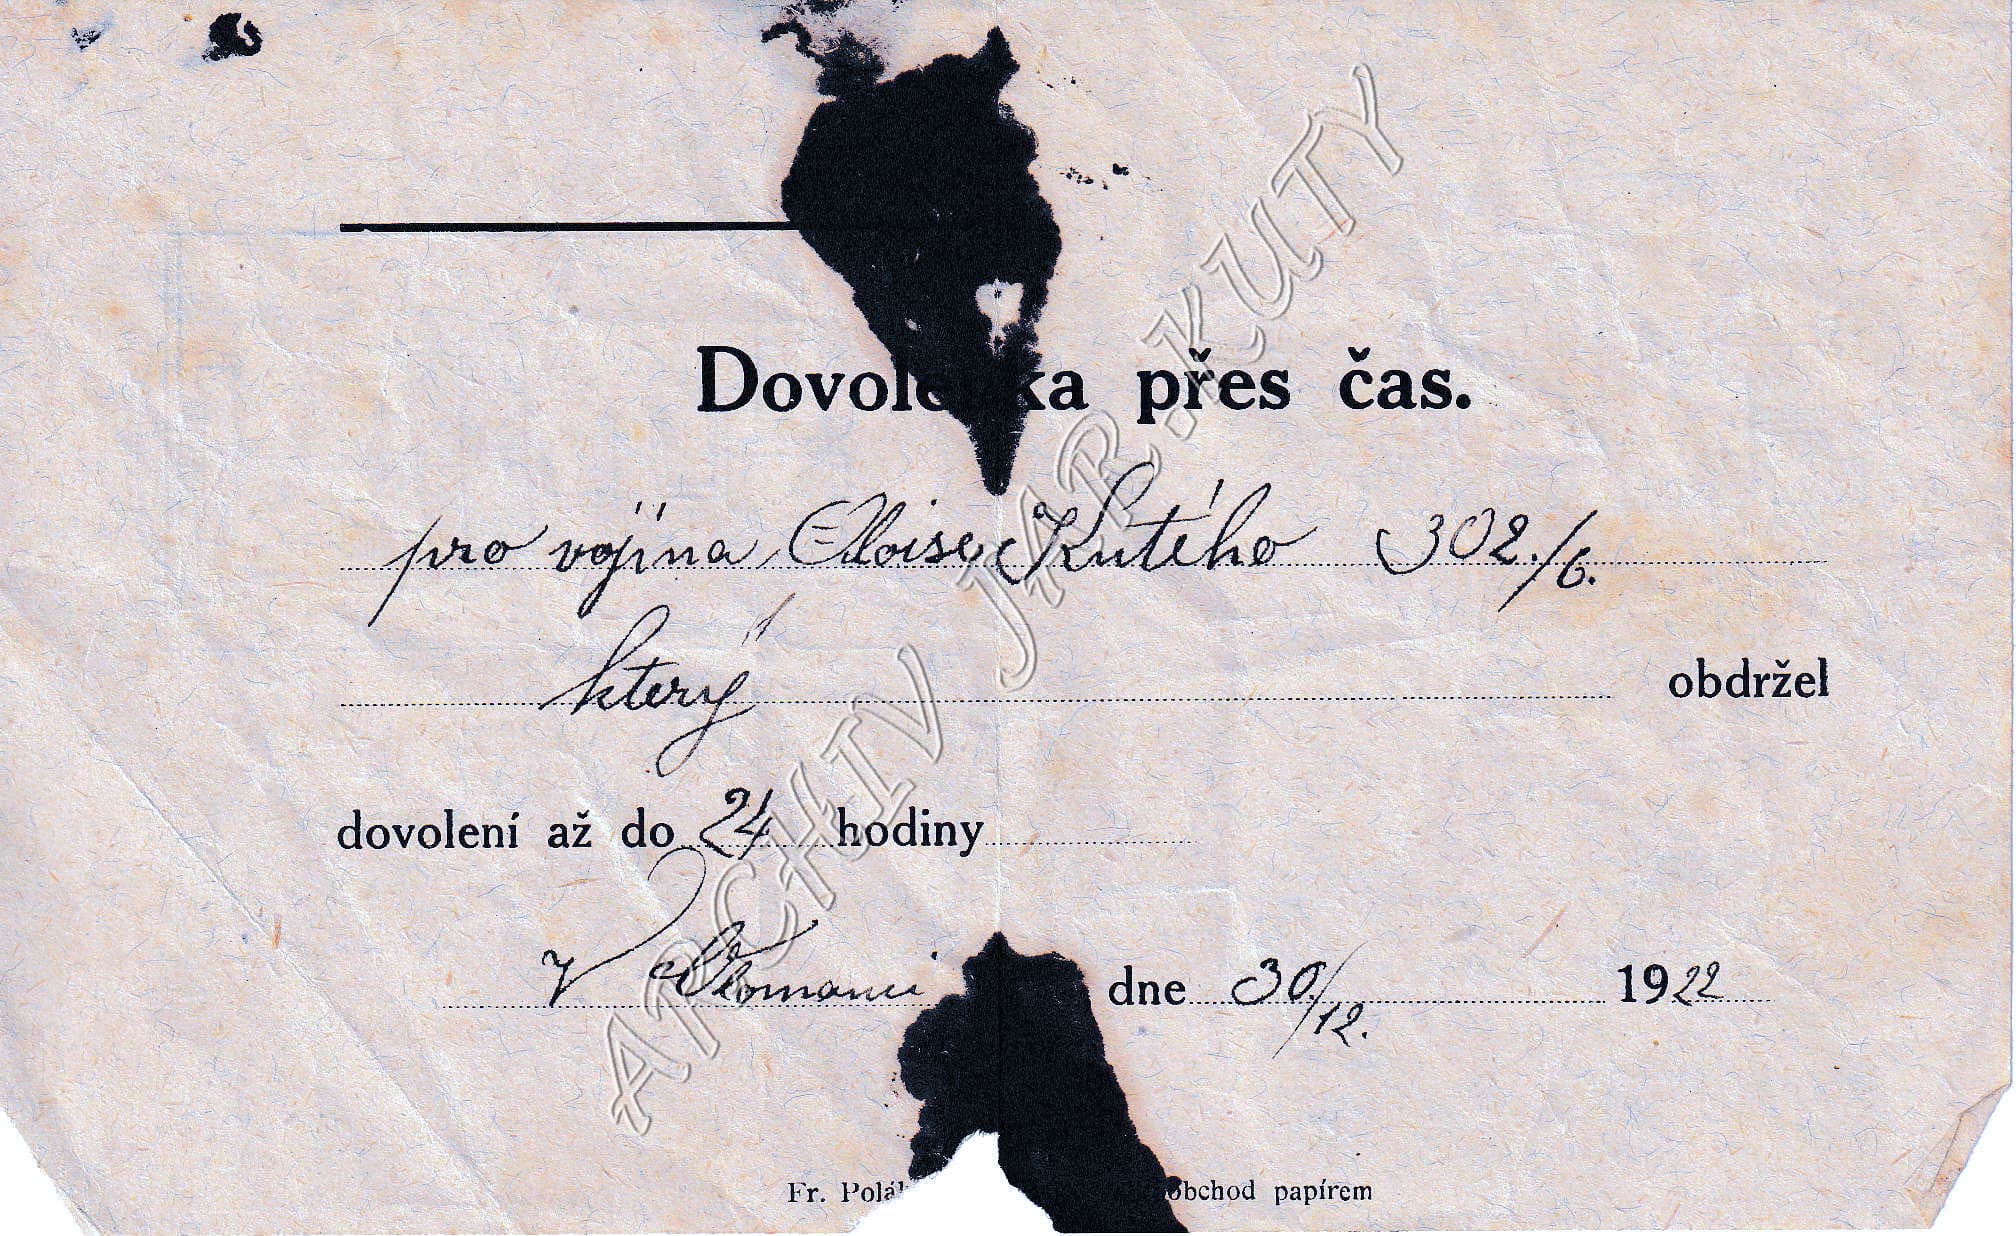 Dovolenka přes čas.
pro vojína Aloise Kutého 302./6.
který obdržel
dovolení až do 24 hodiny
V dne 30./12. 1922
Fr. obchod papírem
ARCHIV JAR.KUTY